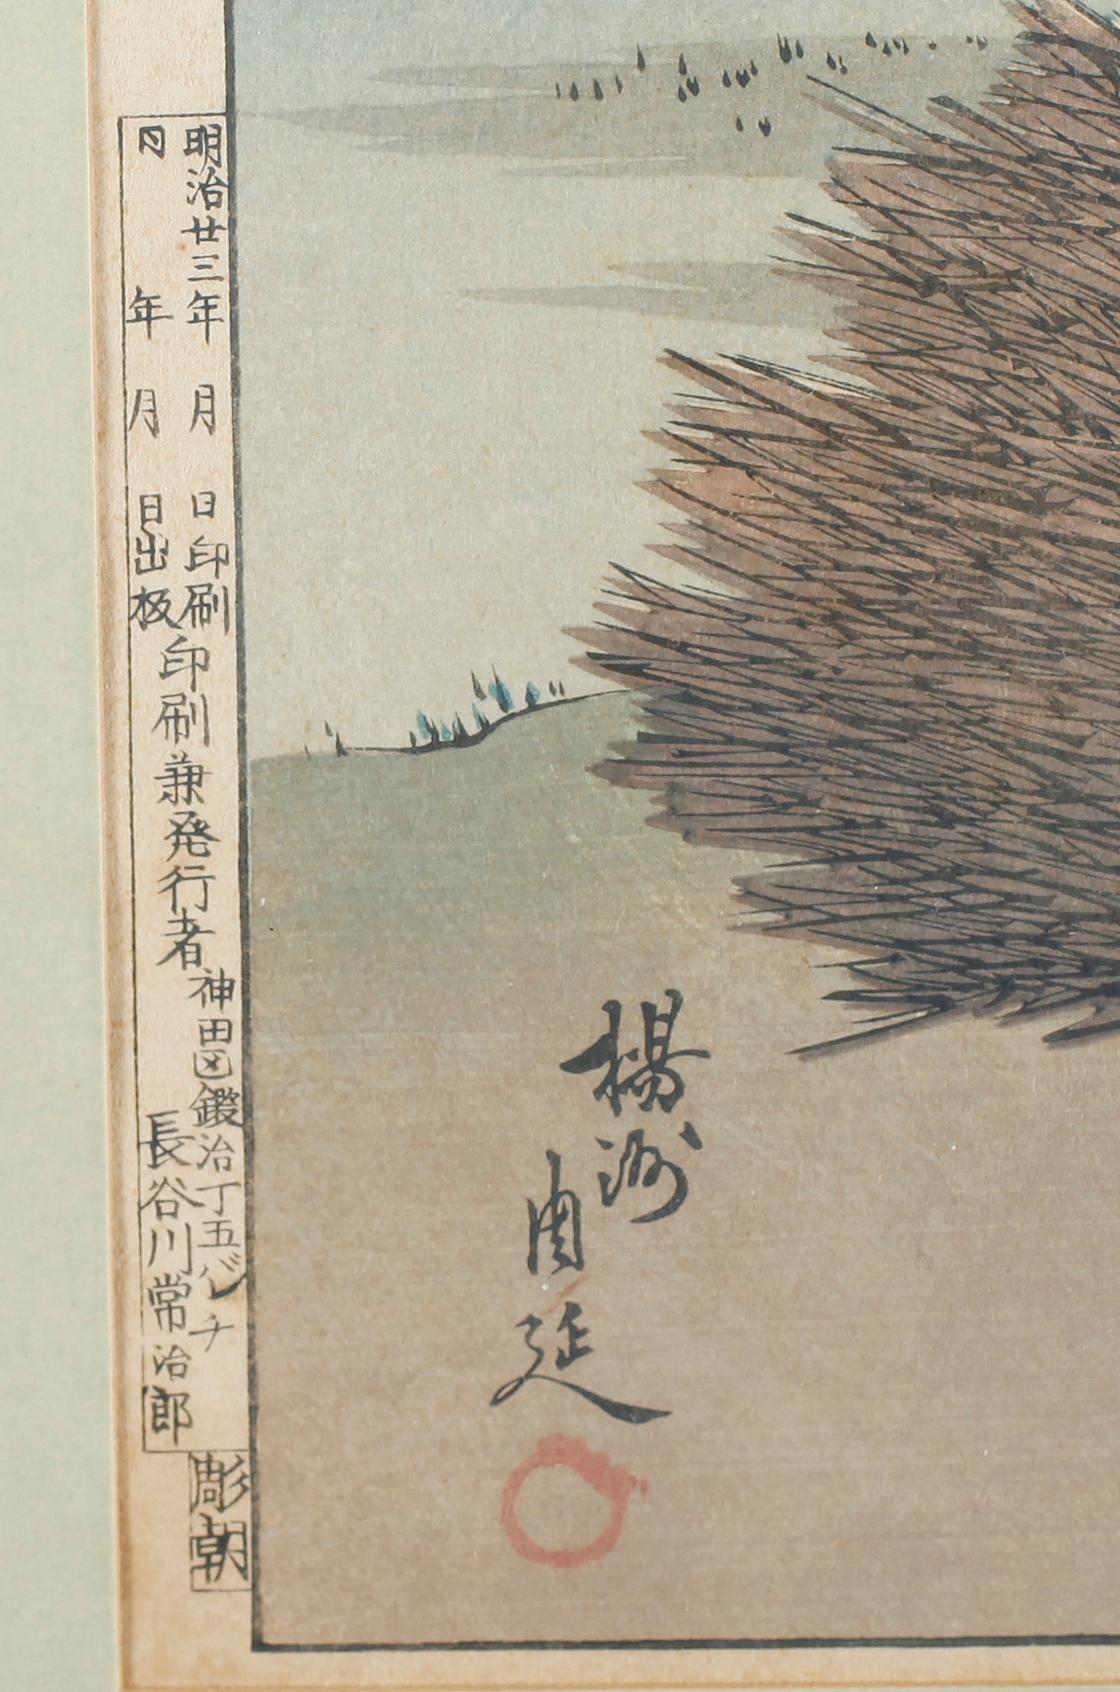 楊洲
周延
明治廿三年 月 日印刷
同 年 月 日出板
印刷兼発行者
神田区鍛治丁五バンチ
長谷川常治郎
彫朝